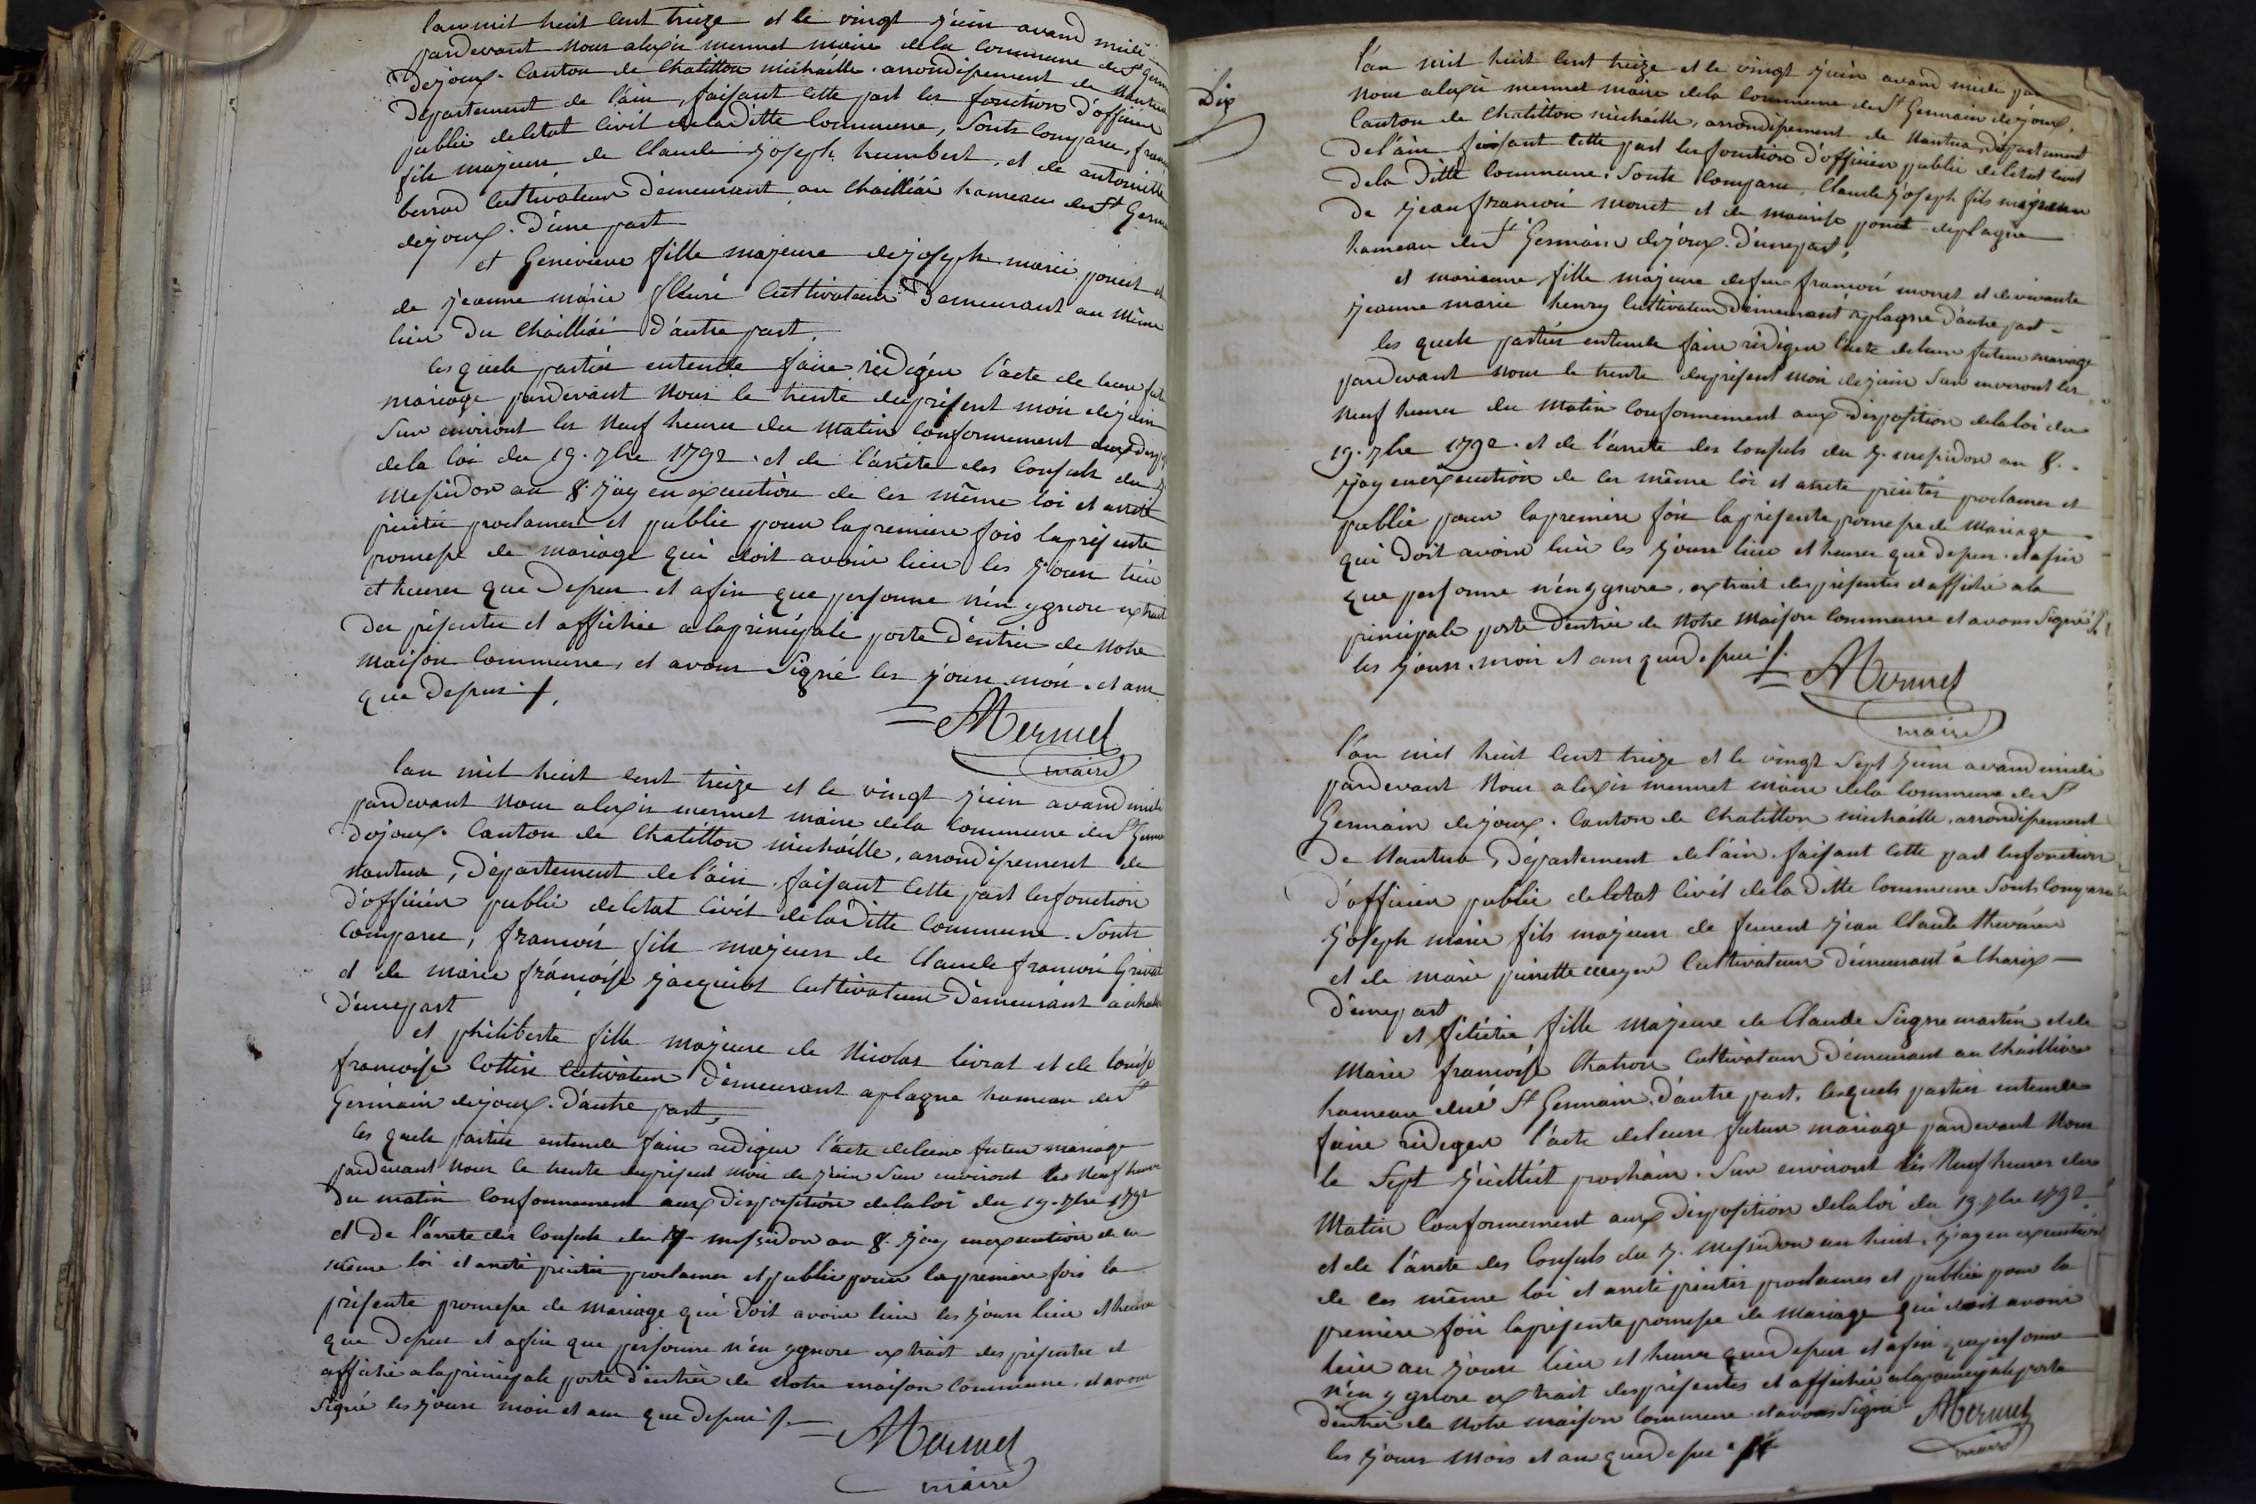 l'an mil huit cent treize et le vingt juin avand midi
pardevant nous alexis mermet maire dela commune de St Germ
dejoux. Canton de Chatillon michaille. arrondissement de Nantua
Département de l'ain, faisant cette part les fonction d'officier
public deletat Civil delaDitte Commune, Sont Comparu,
fils majeur de Claude joseph humbert, et de antoinette
Cultivateur demeurant au Chaillié hameau de St Germ
dejoux. d'une part
et Genevieve fille majeure dejoseph marie poncet et
de jeanne marie Cultivateur Demeurant au même
lieu du Chaillié D'autre part,
les quels parties entende faire rédigér l'acte de leur fut
mariage pardevant Nous le trente duprésent moi dejuin
Sur environt les Neuf heures du Matin Conformement aux
dela loi du 19. 7bre 1792. et de l'arrete des Consuls du 7
messidor an 8. j'ay en execution de ces même loi et arrêté
proclamer et publie pour lapremiere fois laprésente
promesse de mariage qui doit avoir lieu les jour lieu
et heures que Dessus et afin que personne n'én ygnore extrait
des présentes et affichée alaprincipale porte D'entrée de Notre
Maison Commune, et avons Signé les jours moi. et an
que Dessus.
AMermet
maire
l'an mil huit cent treize et le vingt juin avand midi
pardevant nous alexis mermet maire dela Commune de St Germ
Dejoux. Canton de Chatillon michaille, arrondissement de
Nantua, Département del'ain. faisant Cette part les fonction
d'officiér public deletat Civil delaDitte Commune. Sont
Comparu, francois fils majeur de Claude francoi
et de marie francoise jacquiot Cultivateur Demeurant
D'une part
et philiberte fille majeure de Nicolas livrat et de louise
francoise Cottin Cultivateur Demeurant aplagne hameau de St
Germain dejoux. D'autre part,
les quels partie entende faire rédiger l'acte deleur futur mariage
pardevant Nous le trente duprésent moi de juin Sur environt les Neuf heure
Du matin Conformement aux disposition delaloi du 19. 7bre 1792
et De l'arrete des Consuls du 7 messidor an 8. j'ay enexecution de ce
même loi et arrêté proclamer et publie pour lapremiere fois la
présente promesse de mariage qui Doit avoir lieu les jour lieu et heure
que Dessus et afin que personne n'én ygnore extrait des présentes et
affiché alaprincipale porte d'entrée de Notre maison Commune. et avons
Signé les jours moi et an que dessus.
AMermet
maire
Dix
l'an mil huit cent treize et le vingt juin avand midi par
Nous alexis mermet maire dela Commune de St Germain dejoux,
Canton de Chatillon michaille, arrondissement de Nantua Département
De l'ain faisant Cette part les fonction d'officier public deletat Civil
dela Ditte Commune; Sont Comparu, Claude joseph fils majeur
De jean francoi monet et de maurise poncet deplagne
hameau de St Germain dejoux. D'unepart,
et marianne fille majeure defeu francoi monet et devivante
jeanne marie henry Cultivateur Demeurant aplagne D'autre part
les quels partiés entende faire rédiger l'acte deleur futur mariage
pardevant nous le trente duprésent moi dejuin Sur environt les
Neuf heures du Matin Conformement aux disposition delaloi du
19. 7bre 1792. et de l'arrete des Consuls du 7. messidor an 8.
j'ay enexecution de ces même loi et arrete proclamer et
publie pour lapremiere foi la présente promesse de Mariage
qui Doit avoir lieu les jours lieu et heures que dessus. et afin
que personne n'én ygnore, extrait desprésentes et affiché ala
principale porte D'entrée de Notre Maison Commune et avons Signé
les jours. moi et an que dessus.
AMermet
maire
l'an mil huit cent treize et le vingt Sept juin avand midi
pardevant Nous alexis mermet maire dela Commune de St
Germain dejoux. Canton de Chatillon michaille. arrondissement
De Nantua, Département del'ain. faisant Cette part les fonction
d'officier public deletat Civil dela Ditte Commune Sont Comparu
joseph marie fils majeur de jean Claude
et de marie pierrette Cultivateur Demeurant à Charix
D'unepart
et félicité fille majeure de Claude Signemartin et de
Marie francoise Chatron Cultivateur Demeurant au Chaillié
hameau dud St Germain. D'autre part. lesquels parties entende
faire rédiger l'acte deleur futur mariage pardevant Nous
le Sept juillet prochain. Sur environt les Neuf heures du
Matin Conformement aux Disposition delaloi du 19 7bre 1792
et de l'arrete des Consuls du 7. Messidor an huit. j'ay en execution
de ces même loi et arrêté proclamer et publie pour la
premiere foi laprésente promesse de Mariage qui doit avoir
lieu au jour lieu et heure que dessus et afin quepersonne
n'én ygnore extrait desprésentes et affichée alaprincipale porte
d'entrée de Notre maison Commune et avons Signé
les jours Mois et an que dessus
AMermet
maire